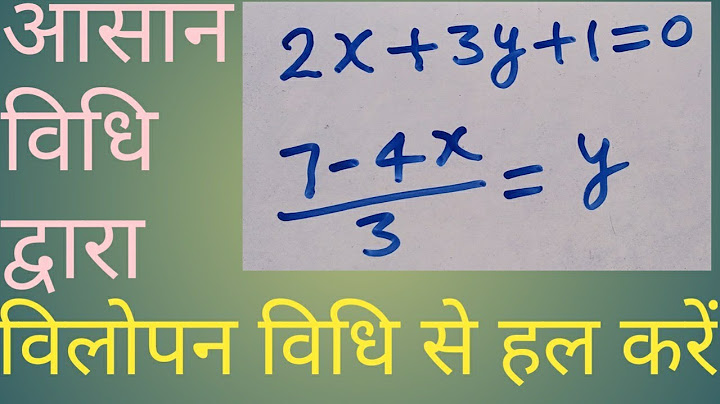 आसान
विधि
द्वारा
2x+3y+1=0
7-4x
3
= y
विलोपन विधि से हल करें